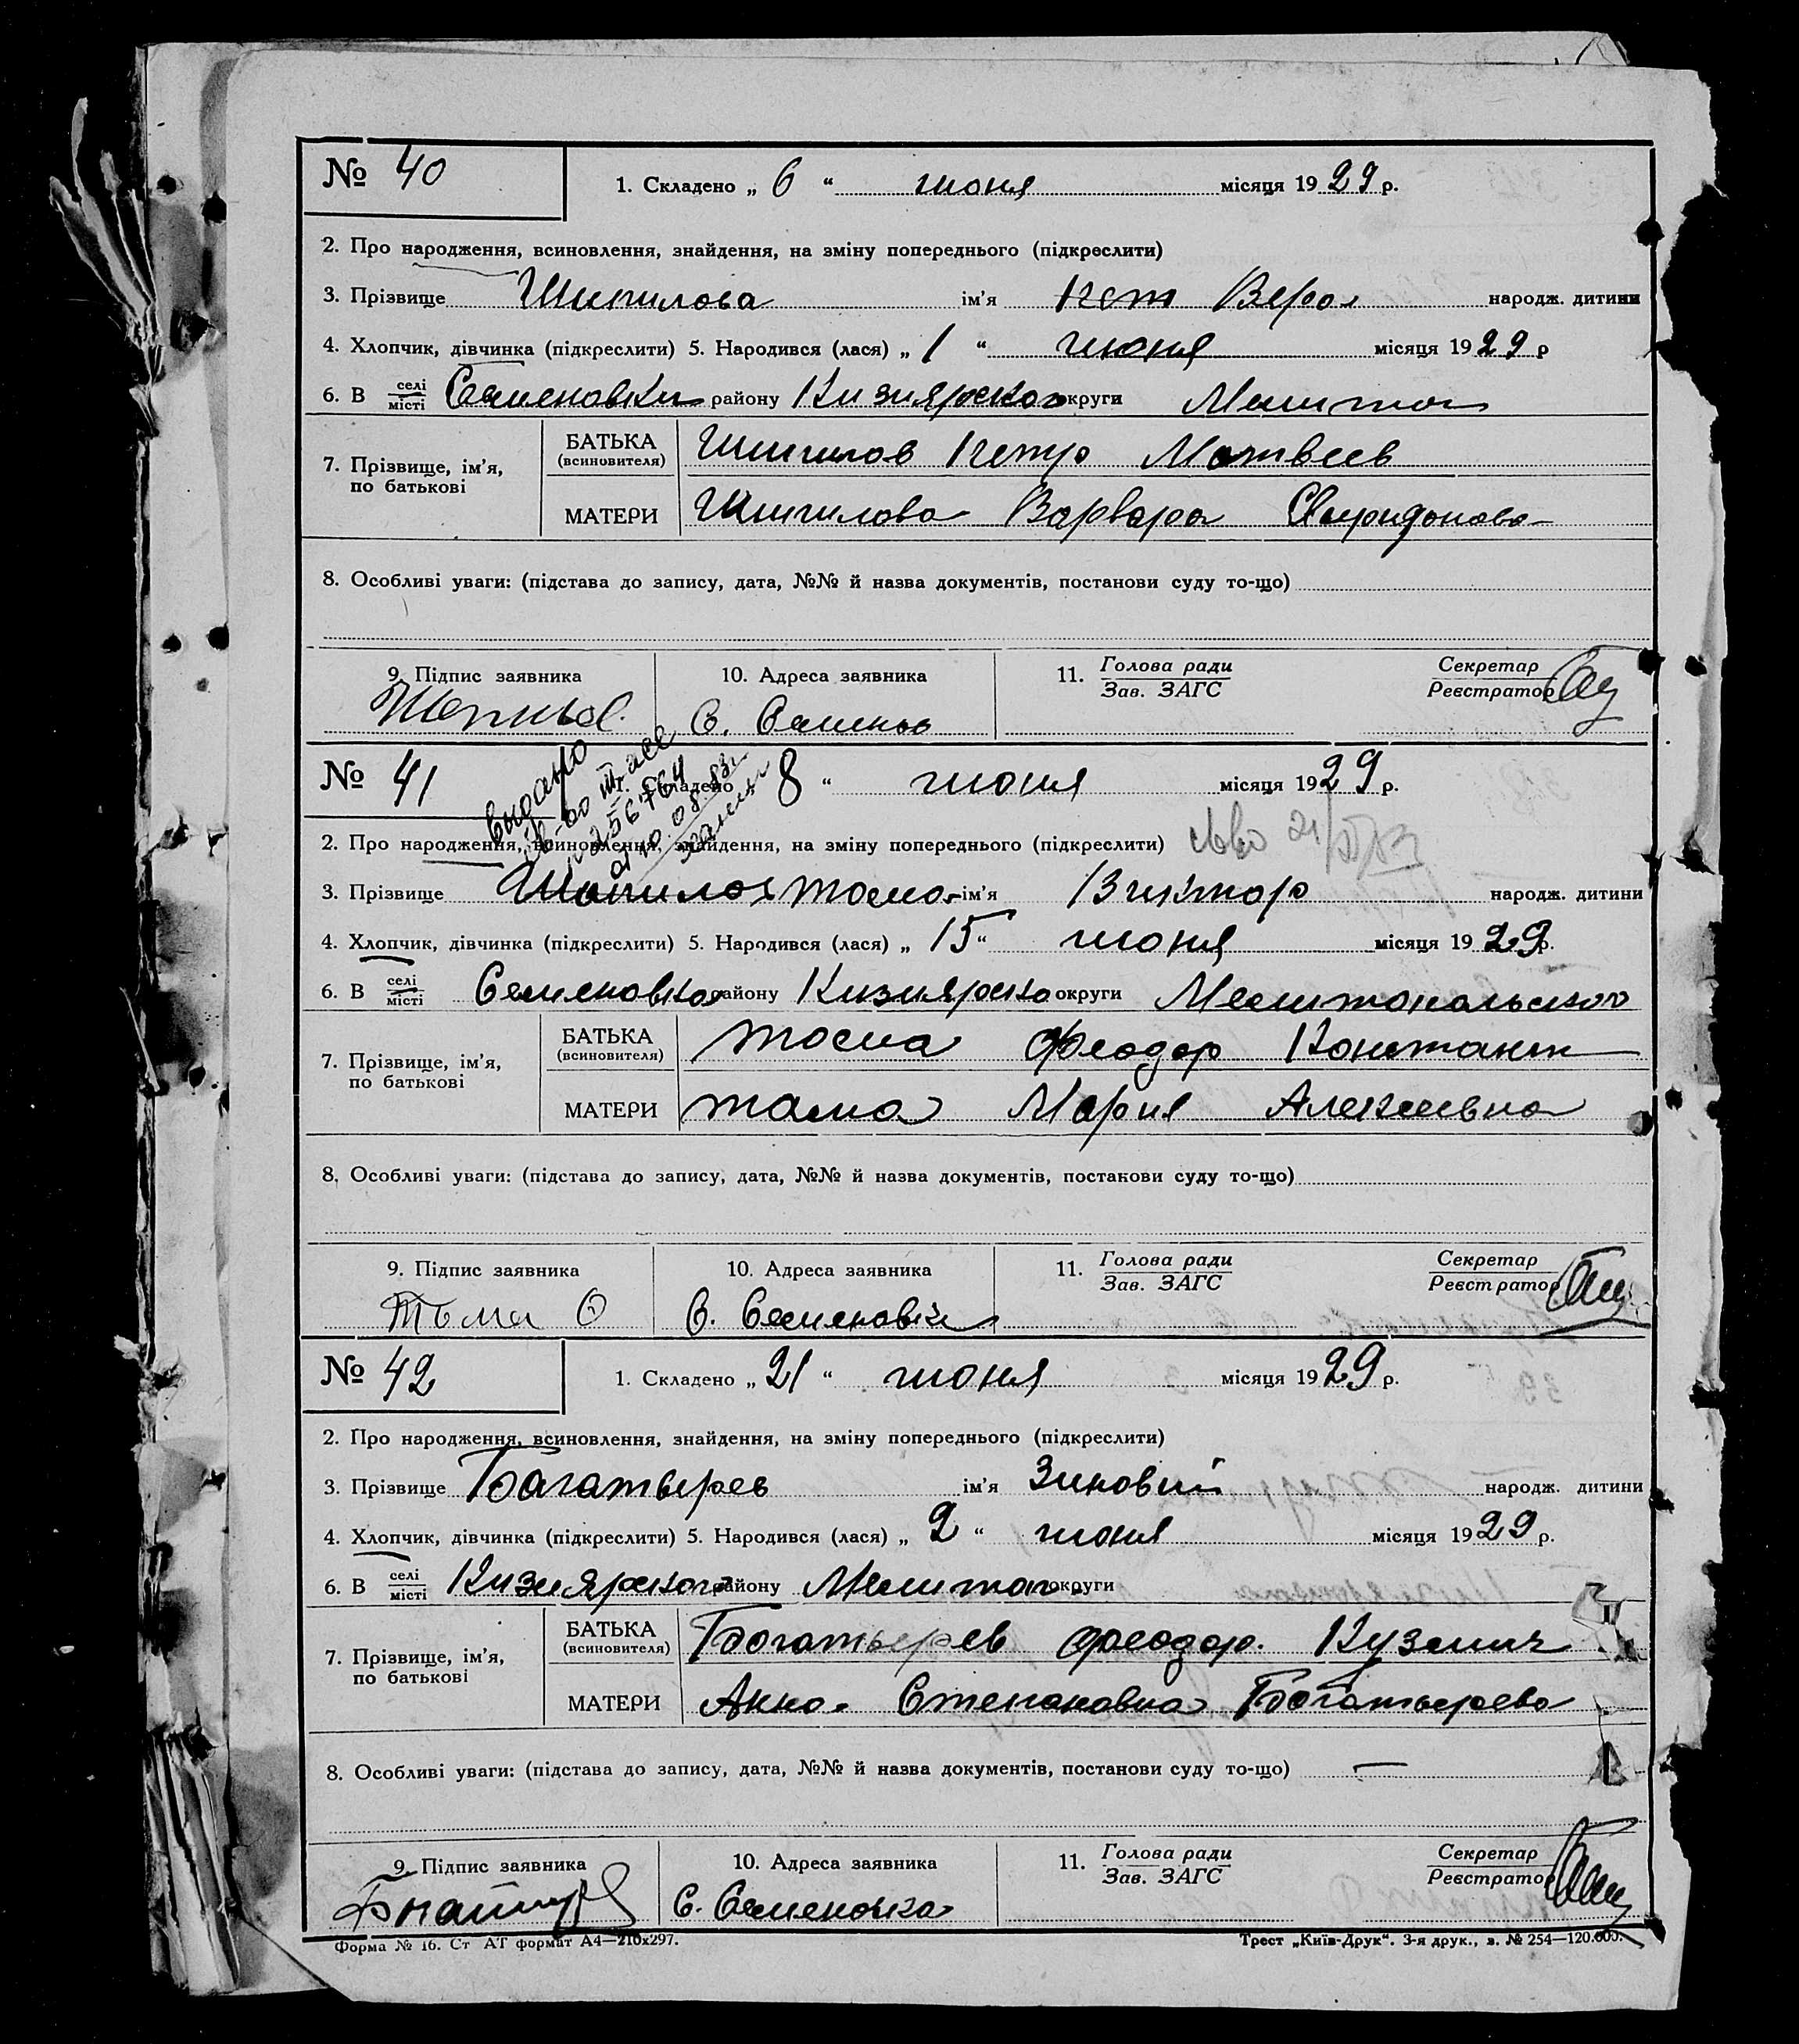 № 40 1. Складено „ 6 “ июня місяця 1929 р.
2. Про народження, всиновлення, знайдення, на зміну попереднього (підкреслити)
3. Прізвище Шипилова ім’я Вера народж. дитини
4. Хлопчик, дівчинка (підкреслити) 5. Народився (лася) „ 1 “ июня місяця 1929 р
6. В селі місті Семеновки району Кизиярского округи Мелитоп
7. Прізвище, ім’я, по батькові
БАТЬКА (всиновителя) Шипилов Петр Матвеев
МАТЕРИ Шипилова Варвара Спиридонова
8. Особливі уваги: (підстава до запису, дата, №№ й назва документів, постанови суду то-що)
9. Підпис заявника 10. Адреса заявника 11. Голова ради Зав. ЗАГС Секретар Реєстратор
С. Семенов
№ 41 1. Складено 8 “ июня місяця 1929 р.
выдано
св-во
256764
2. Про народження, всиновлення, знайдення, на зміну попереднього (підкреслити)
3. Прізвище Шипилов Тома ім’я Виктор народж. дитини
4. Хлопчик, дівчинка (підкреслити) 5. Народився (лася) „ 15 “ июня місяця 1929 р.
6. В селі місті Семеновка району Кизиярско округи Мелитопольского
7. Прізвище, ім’я, по батькові
БАТЬКА (всиновителя) Тома Феодор Констант
МАТЕРИ Тома Мария Алексеевна
8. Особливі уваги: (підстава до запису, дата, №№ й назва документів, постанови суду то-що)
9. Підпис заявника 10. Адреса заявника 11. Голова ради Зав. ЗАГС Секретар Реєстратор
Тома Ѳ С. Семеновки
№ 42 1. Складено „ 21 “ июня місяця 1929 р.
2. Про народження, всиновлення, знайдення, на зміну попереднього (підкреслити)
3. Прізвище Багатырев ім’я Зиновий народж. дитини
4. Хлопчик, дівчинка (підкреслити) 5. Народився (лася) „ 2 “ июня місяця 1929 р.
6. В селі місті Кизиярского району Мелитоп округи
7. Прізвище, ім’я, по батькові
БАТЬКА (всиновителя) Богатырев Феодор. Кузмич
МАТЕРИ Анна Степановна Богатырева
8. Особливі уваги: (підстава до запису, дата, №№ й назва документів, постанови суду то-що) —
9. Підпис заявника 10. Адреса заявника 11. Голова ради Зав. ЗАГС Секретар Реєстратор
С. Семеновка
Форма № 16. Ст АТ формат А4—210х297. Трест „Київ-Друк“. 3-я друк., з. № 254—120.000.